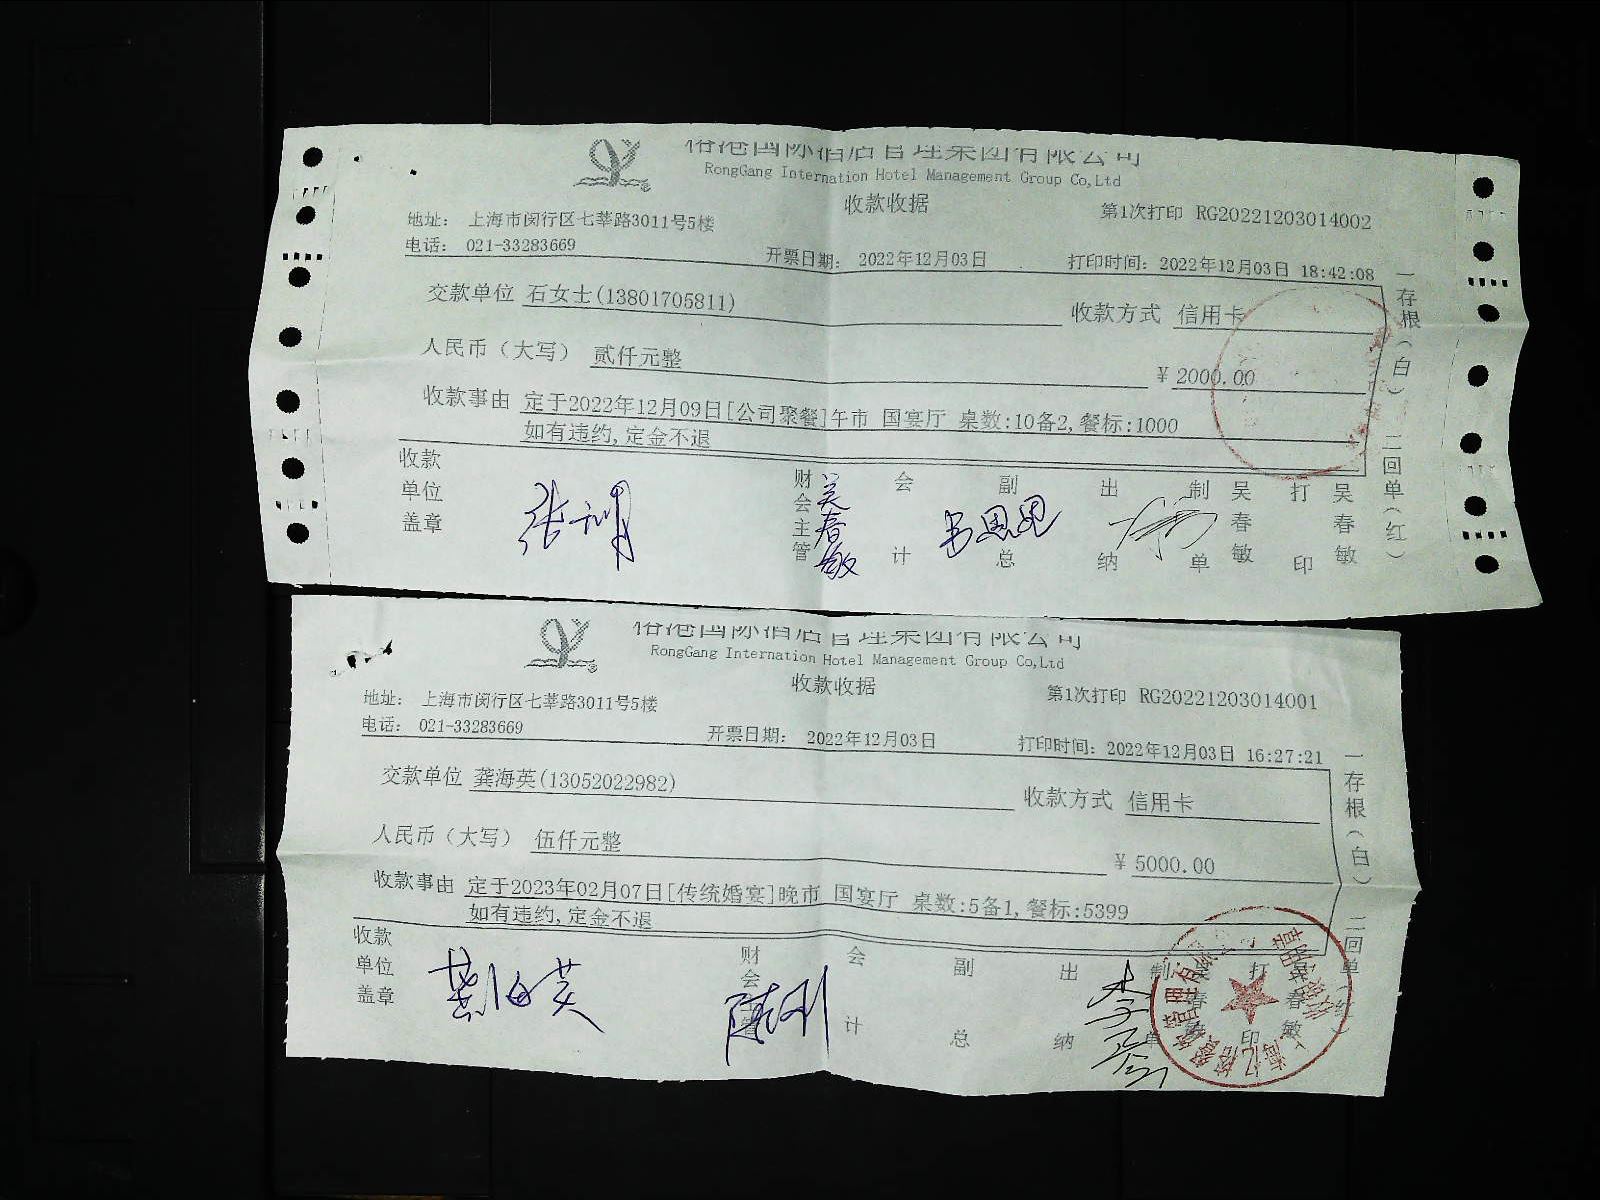 裕港国际酒店管理集团有限公司
RongGang Internation Hotel Management Group Co,Ltd
收款收据
第1次打印 RG20221203014002
地址: 上海市闵行区七莘路3011号5楼
电话: 021-33283669
开票日期: 2022年12月03日
打印时间: 2022年12月03日 18:42:08
交款单位 石女士(13801705811)
收款方式 信用卡
人民币(大写) 贰仟元整
¥ 2000.00
收款事由 定于2022年12月09日[公司聚餐]午市 国宴厅 桌数:10备2,餐标:1000
如有违约,定金不退
收款单位盖章
财会主管 吴春敏
会计
副总
出纳
制单 吴春敏
打印 吴春敏
一存根(白) 二回单(红)
裕港国际酒店管理集团有限公司
RongGang Internation Hotel Management Group Co,Ltd
收款收据
第1次打印 RG20221203014001
地址: 上海市闵行区七莘路3011号5楼
电话: 021-33283669
开票日期: 2022年12月03日
打印时间: 2022年12月03日 16:27:21
交款单位 龚海英(13052022982)
收款方式 信用卡
人民币(大写) 伍仟元整
¥ 5000.00
收款事由 定于2023年02月07日[传统婚宴]晚市 国宴厅 桌数:5备1,餐标:5399
如有违约,定金不退
收款单位盖章
财会主管 陈刚
会计
副总
出纳
制单 吴春敏
打印 吴春敏
一存根(白) 二回单(红)